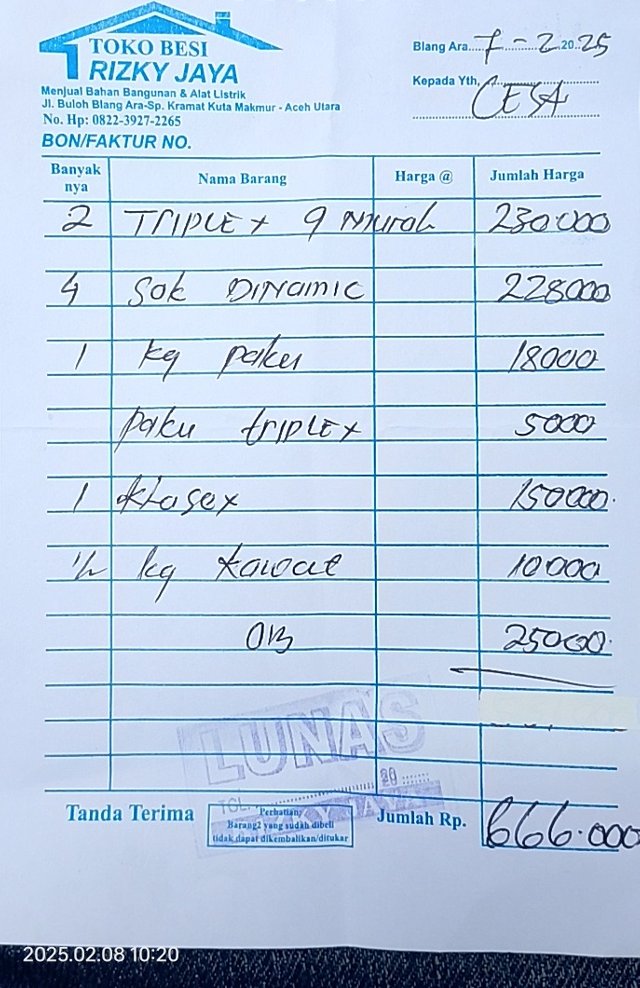 TOKO BESI
RIZKY JAYA
Menjual Bahan Bangunan & Alat Listrik
Jl. Buloh Blang Ara-Sp. Kramat Kuta Makmur - Aceh Utara
No. Hp: 0822-3927-2265
BON/FAKTUR NO.
Blang Ara.....7 - 2.20.25
Kepada Yth,
CESA
Banyak nya Nama Barang Harga @ Jumlah Harga
2 TRIPLEX 9 Murah 230000
4 Sak DINAMIC 228000
1 kg paku 18000
paku TRIPLEX 5000
1 klasex 150000
1/2 kg kawat 10000
OB 25000
LUNAS
TGL. 20
Tanda Terima
Perhatian:
Barang2 yang sudah dibeli
tidak dapat dikembalikan/ditukar
Jumlah Rp. 666.000
2025.02.08 10:20